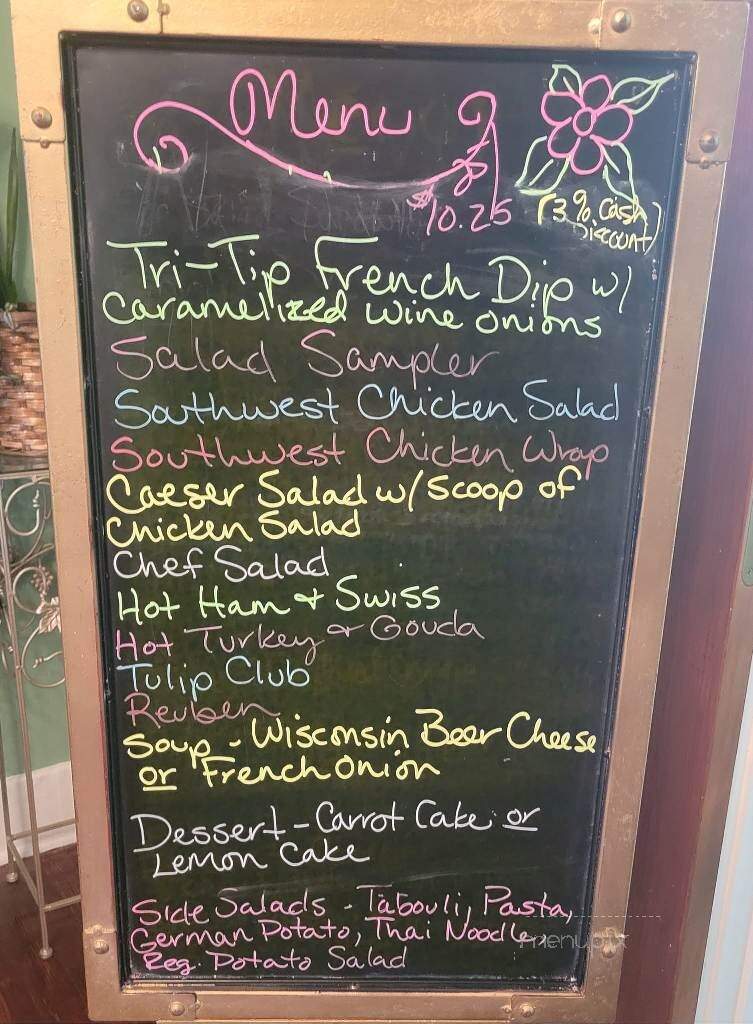 Menu
$10.25 (3% Cash
Discount)
Tri-Tip French Dip w/
Caramelized wine onions
Salad Sampler
Southwest Chicken Salad
Southwest Chicken Wrap
Caeser Salad w/ scoop of
Chicken Salad
Chef Salad
Hot Ham & Swiss
Hot Turkey & Gouda
Tulip Club
Reuben
Soup - Wisconsin Beer Cheese
or French Onion
Dessert - Carrot Cake or
Lemon Cake
Side Salads - Tabouli, Pasta,
German Potato, Thai Noodle,
Reg. Potato Salad
menupix